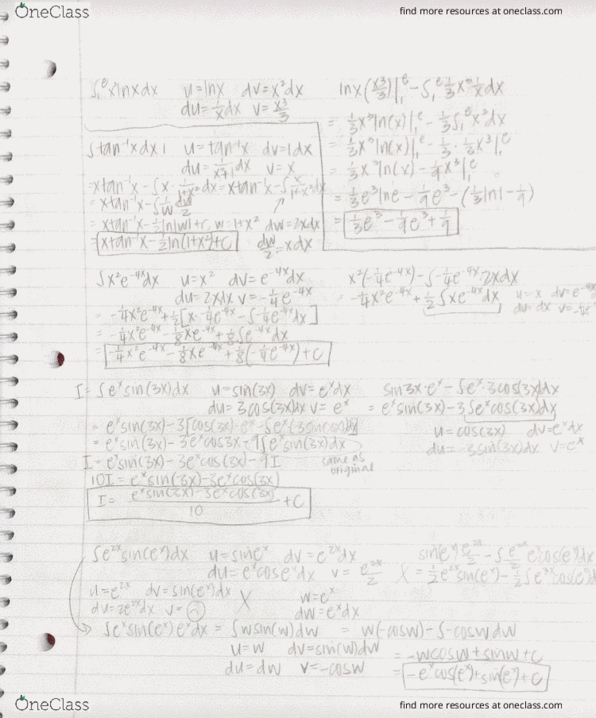 OneClass
find more resources at oneclass.com
∫₁ᵉ x²lnxdx u=lnx dv=x²dx
du=1/x dx v=x³/3
lnx(x³/3)|₁ᵉ - ∫₁ᵉ 1/3 x³ 1/x dx
= 1/3x³ln(x)|₁ᵉ - 1/3∫₁ᵉx²dx
= 1/3x³ln(x)|₁ᵉ - 1/3 · 1/3x³|₁ᵉ
= 1/3x³ln(x) - 1/9x³|₁ᵉ
= 1/3e³lne - 1/9e³ - (1/3ln1 - 1/9)
= 1/3e³ - 1/9e³ + 1/9
∫tan⁻¹xdx u=tan⁻¹x dv=1dx
v=x
= xtan⁻¹x - ∫1/w dw/2
= xtan⁻¹x - 1/2ln|w|+C, w=1+x² dw=2xdx
xtan⁻¹x - 1/2ln(1+x²)+C dw/2=xdx
∫x²e⁻⁴ˣdx u=x² dv=e⁻⁴ˣdx
du=2xdx v=-1/4e⁻⁴ˣ
x²(-1/4e⁻⁴ˣ) - ∫-1/4e⁻⁴ˣ 2xdx
-1/4x²e⁻⁴ˣ + 1/2∫xe⁻⁴ˣdx
= -1/4x²e⁻⁴ˣ + 1/2[x·-1/4e⁻⁴ˣ - ∫-1/4e⁻⁴ˣdx]
= -1/4x²e⁻⁴ˣ - 1/8xe⁻⁴ˣ + 1/8∫e⁻⁴ˣdx
= -1/4x²e⁻⁴ˣ - 1/8xe⁻⁴ˣ + 1/8(-1/4e⁻⁴ˣ)+C
I= ∫eˣsin(3x)dx u=sin(3x) dv=eˣdx
du=3cos(3x)dx v=eˣ
sin3x·eˣ - ∫eˣ·3cos(3x)dx
= eˣsin(3x) - 3∫eˣcos(3x)dx
u=cos(3x) dv=eˣdx
du=-3sin(3x)dx v=eˣ
= eˣsin(3x) - 3eˣcos3x - 9∫eˣsin(3x)dx
same as
original
I= eˣsin(3x) - 3eˣcos(3x) - 9I
10I = eˣsin(3x) - 3eˣcos(3x)
I = (eˣsin(3x) - 3eˣcos(3x))/10 + C
∫e²ˣsin(eˣ)dx u=sineˣ dv=e²ˣdx
du=eˣcoseˣdx v=e²ˣ/2 X
sin(eˣ)e²ˣ/2 - ∫e²ˣ/2 eˣcos(eˣ)dx
u=e²ˣ dv=sin(eˣ)dx X
du=2e²ˣdx v=?
w=eˣ
dw=eˣdx
∫eˣsin(eˣ)eˣdx = ∫wsin(w)dw = w(-cosw) - ∫-coswdw
u=w dv=sin(w)dw
du=dw v=-cosw
= -wcosw+sinw+C
= -eˣcos(eˣ)+sin(eˣ)+C
OneClass
find more resources at oneclass.com